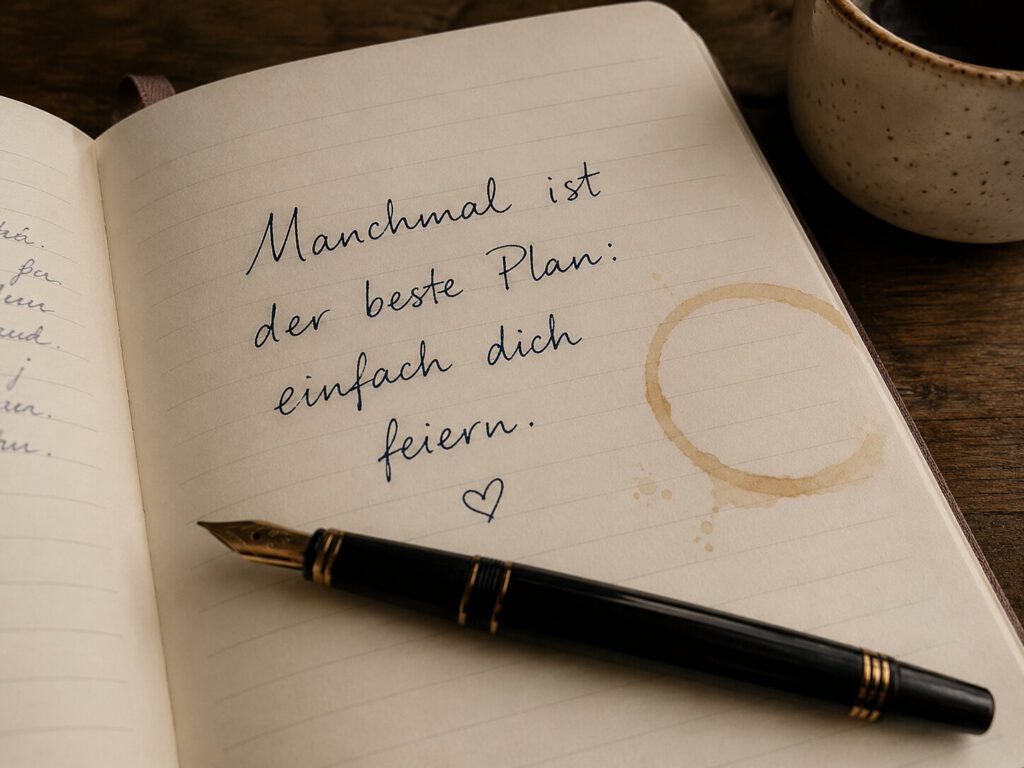 Manchmal ist
der beste Plan:
einfach dich
feiern.
♡